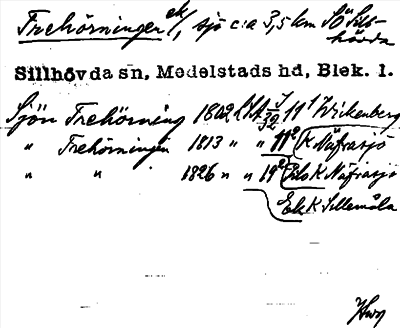 Trehörningen ek/, sjö c:a 3,5 km SÖ Sill-
hövda
Sillhövda sn, Medelstads hd, Blek. l.
Sjön Trehörning 1802 11¹ Wirkenberg
" Trehörningen 1813 " " 11² K Näfrasjö
" " 1826 " " 19² K Näfrasjö
Ek K Sillemåla